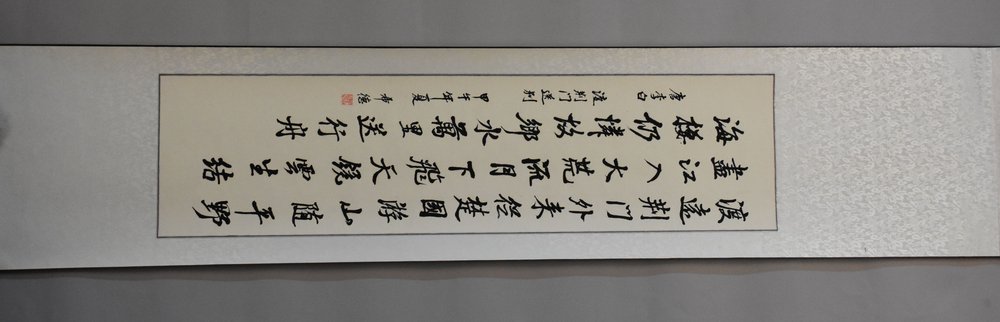 渡遠荆门外来從楚國游山随平野
盡江入大荒流月下飛天镜雲生结
海樓仍憐故鄉水萬里送行舟
唐李白 渡荆门送别 甲午年夏 希德